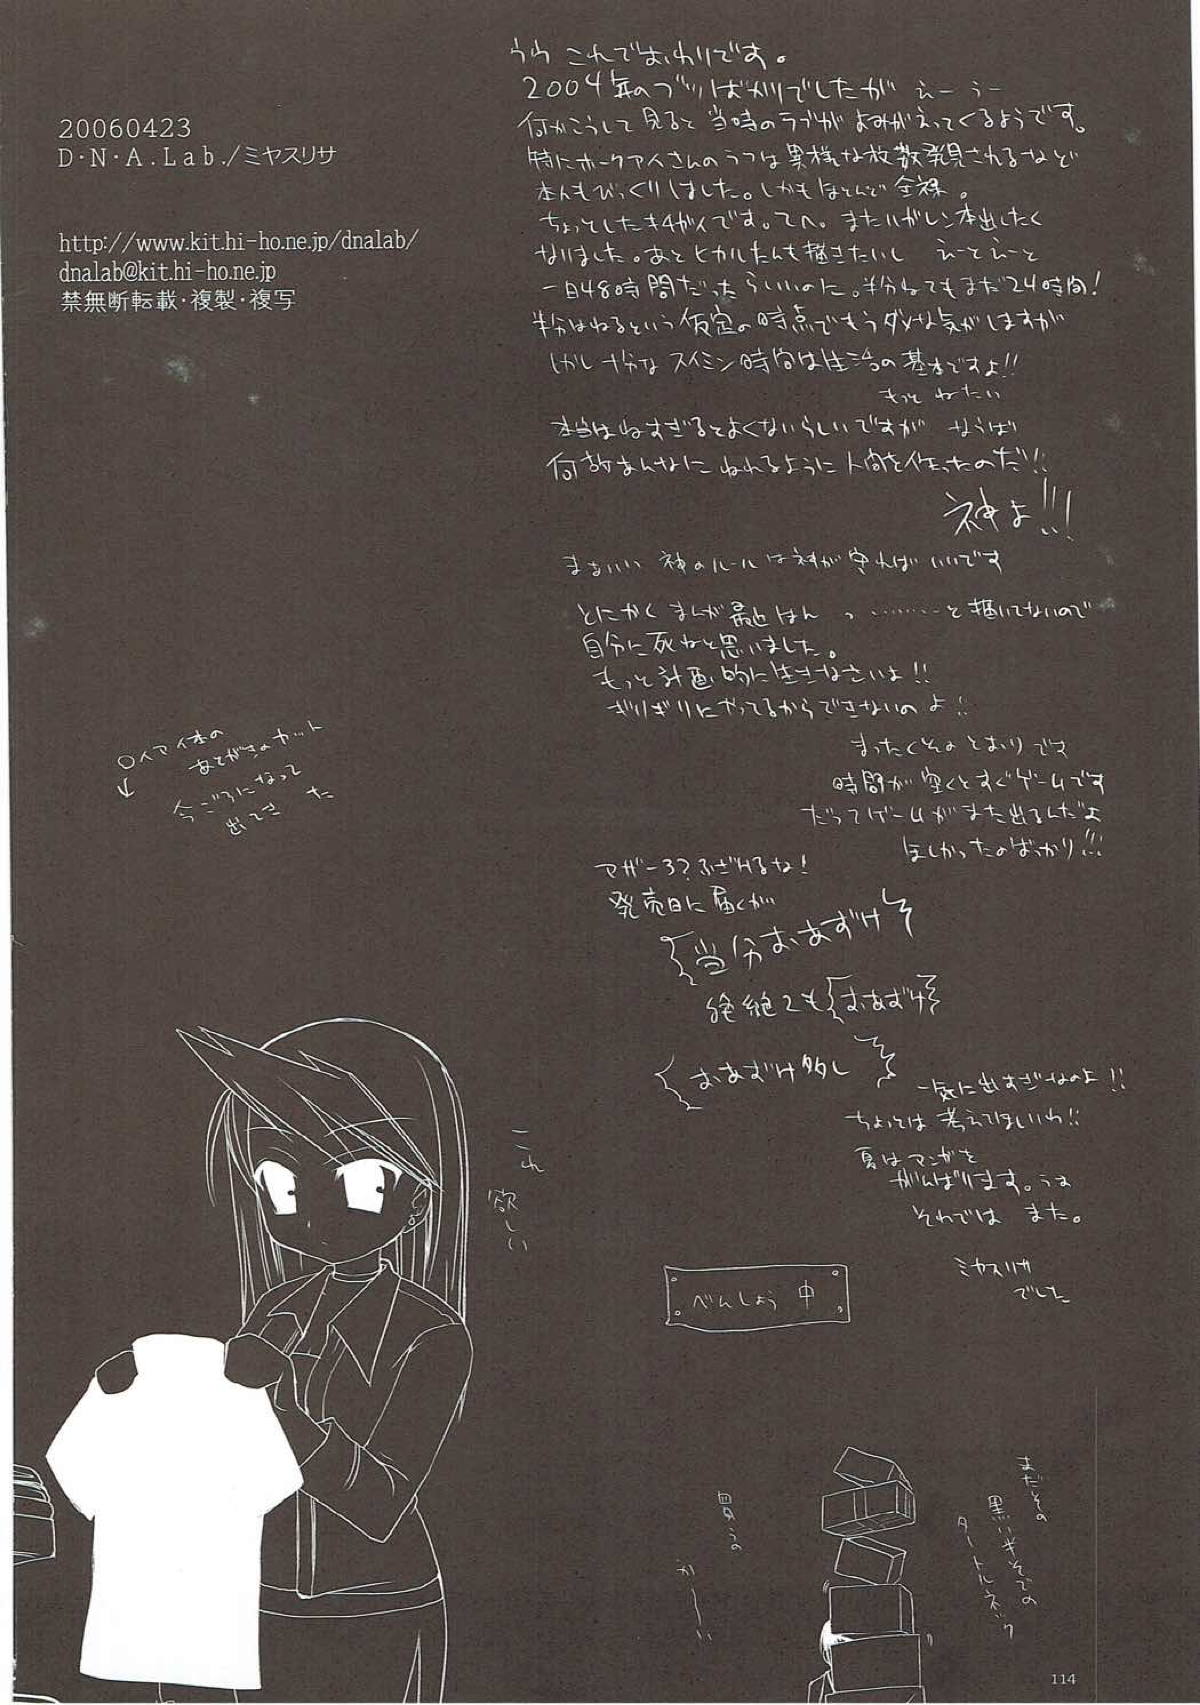 20060423
D・N・A.Lab./ミヤスリサ
http://www.kit.hi-ho.ne.jp/dnalab/
dnalab@kit.hi-ho.ne.jp
禁無断転載・複製・複写
うう これでおわりです。
2004年のブツばかりでしたが えー うー
何かこうして見ると当時のラブがよみがえってくるようです。
特にホークアイさんのラフは異様な枚数発見されるなど
本人もびっくりしました。しかもほとんど全裸。
ちょっとしたキチガイです。てへ。またハガレン本出したく
なりました。あとヒカルたんも描きたいし えーとえーと
一日48時間だったらいいのに。半分ねてもまだ24時間!
半分はねるという仮定の時点でもうダメな気がしますが
しかし十分なスイミン時間は生活の基本ですよ!!
もっと ねたい
本当はねすぎるとよくないらしいですが ならば
何故あんなに ねれるように人間を作ったのだ!!
神よ!!!
まあいい 神のルールは神が守ればいいです
とにかく まんが 最近 はんっ………と描いてないので
自分に死ねと思いました。
もっと計画的に生きなさいよ!!
ぎりぎりにやってるからできないのよ!!
まったくそのとおりです
時間が空くとすぐゲームです
だってゲームがまた出るんだよ
ほしかったのばっかり!!!
マザー3?ふざけるな!
発売日に届くが
当分おあずけ
絶絶2も おあずけ
おあずけ多し
一気に出すぎなのよ!!
ちょっとは考えてほしいわ!!
夏はマンガを
がんばります。うぉ
それでは また。
ミヤスリサ
でした
べんしょう 中
〇イアイ本の
あとがきのカット
今ごろになって
出てきた
これ
欲しい
まだその
黒い半そでの
タートルネック
買うの
かーーい
114